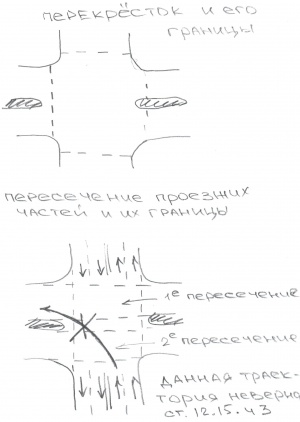 ПЕРЕКРЁСТОК И ЕГО
ГРАНИЦЫ
ПЕРЕСЕЧЕНИЕ ПРОЕЗЖИХ
ЧАСТЕЙ И ИХ ГРАНИЦЫ
1е ПЕРЕСЕЧЕНИЕ
2е ПЕРЕСЕЧЕНИЕ
ДАННАЯ ТРАЕК-
ТОРИЯ НЕВЕРНА
СТ. 12.15. Ч3